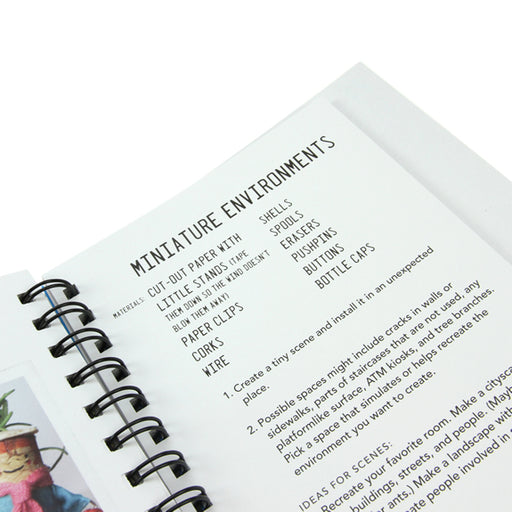 MINIATURE ENVIRONMENTS
MATERIALS: CUT-OUT PAPER WITH
LITTLE STANDS (TAPE
THEM DOWN SO THE WIND DOESN'T
BLOW THEM AWAY)
PAPER CLIPS
CORKS
WIRE
SHELLS
SPOOLS
ERASERS
PUSHPINS
BUTTONS
BOTTLE CAPS
1. Create a tiny scene and install it in an unexpected
place.
2. Possible spaces might include cracks in walls or
sidewalks, parts of staircases that are not used, any
platformlike surface, ATM kiosks, and tree branches.
Pick a space that simulates or helps recreate the
environment you want to create.
IDEAS FOR SCENES:
Recreate your favorite room. Make a citysca
buildings, streets, and people. (Mayb
r ants.) Make a landscape with
ate people involved in